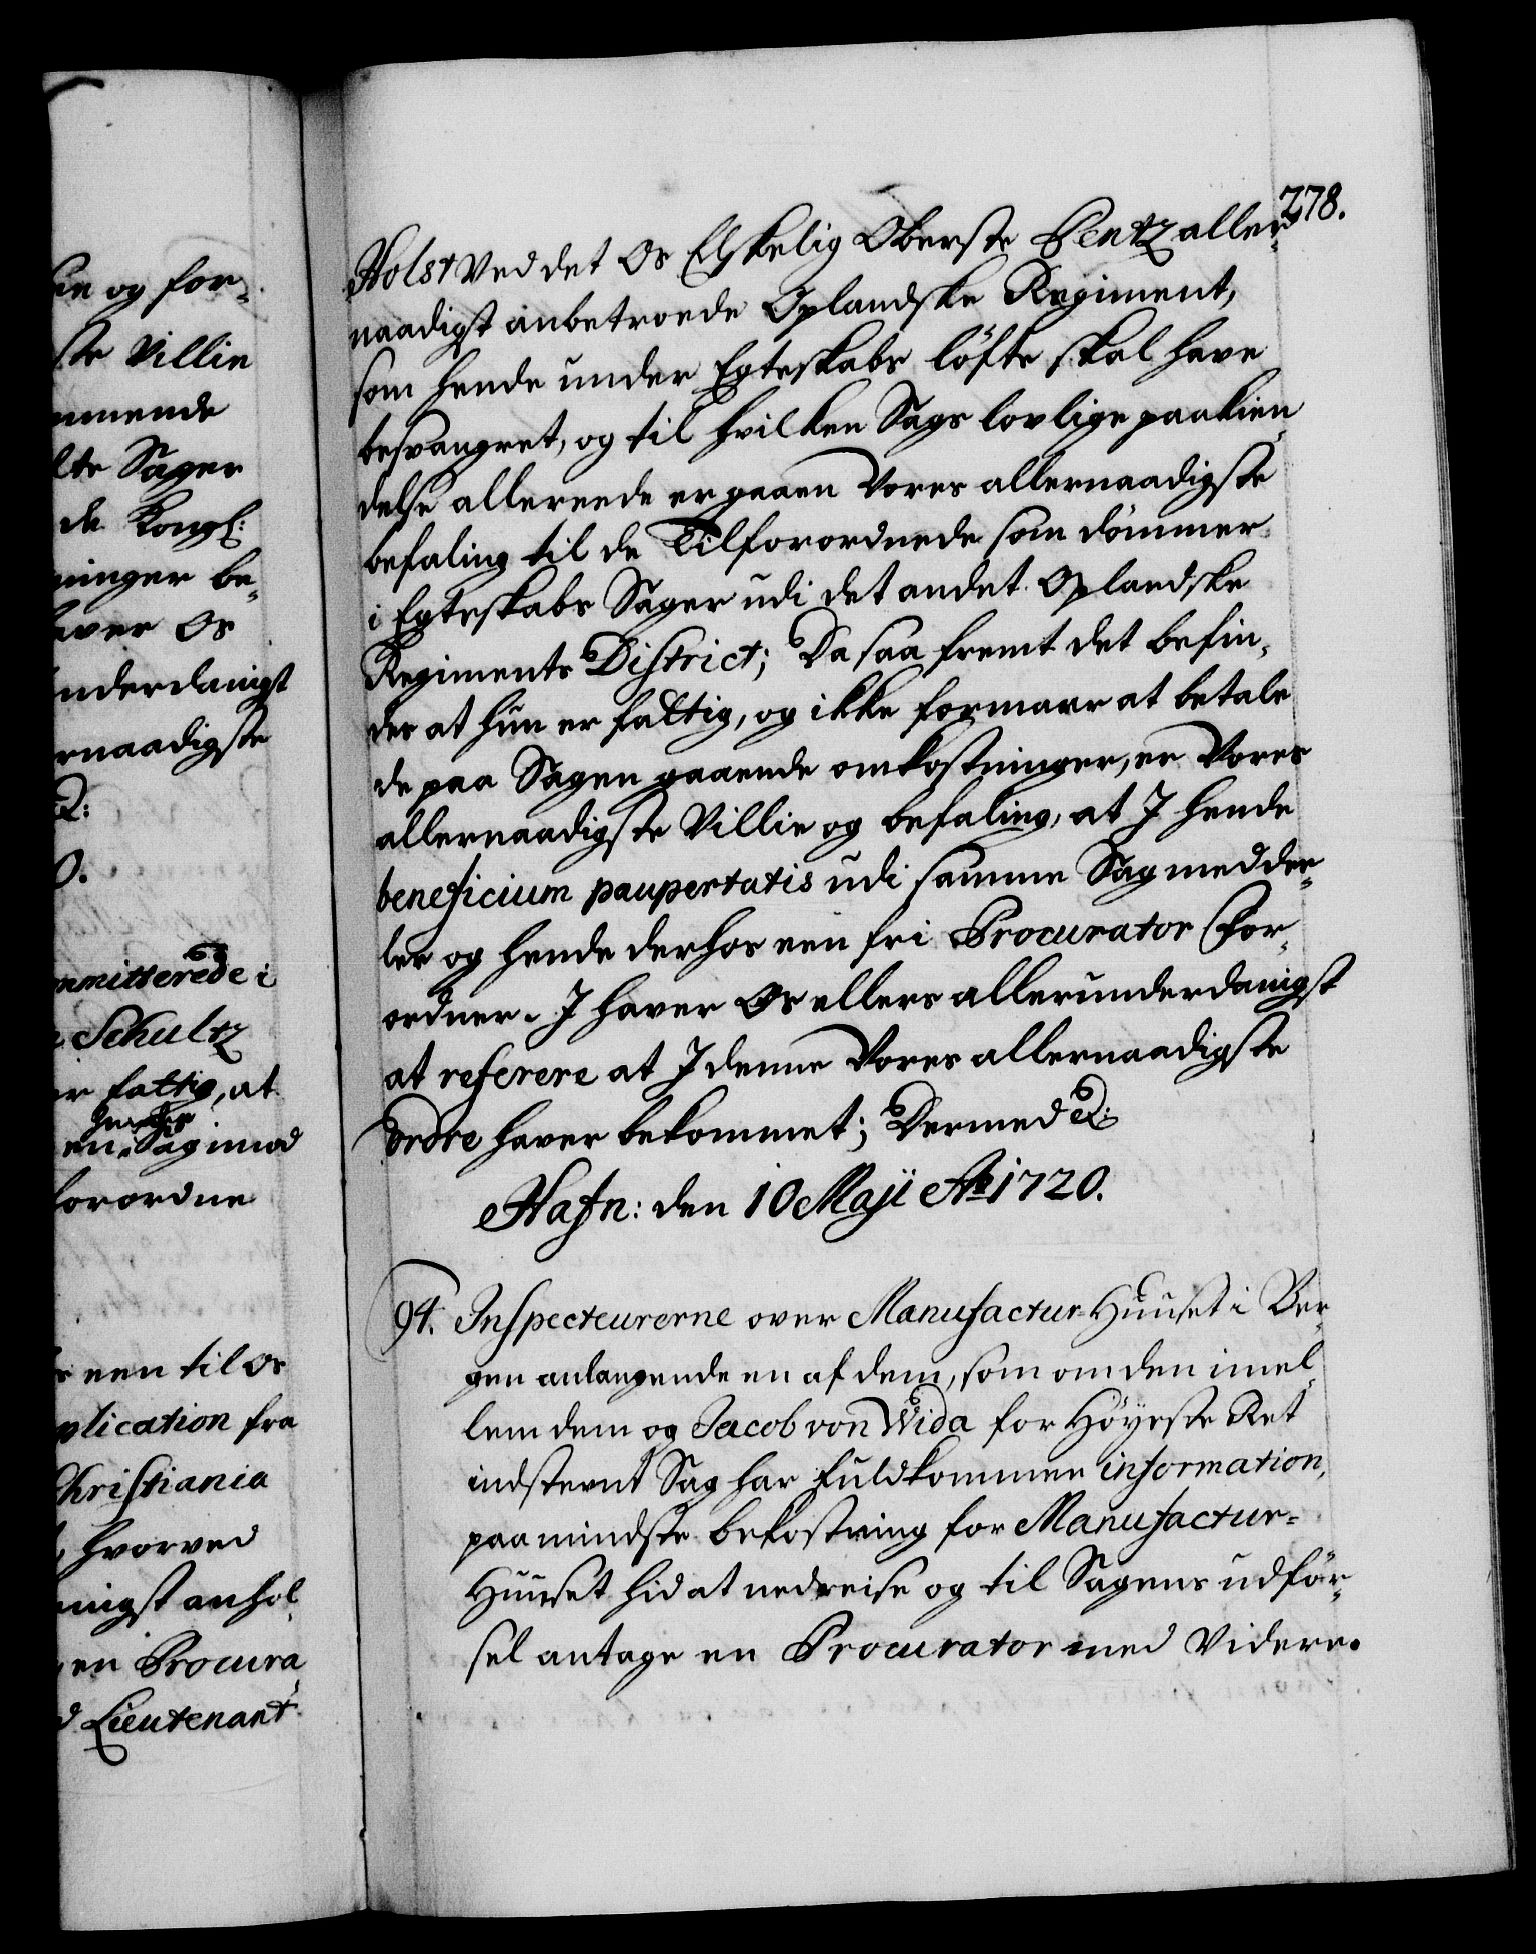 ke og for-
ste Villie
mmende
lte Sager
de Kongl:
ninger be-
aver Os
nderdanigst
rnaadigste
mmitterede i
Schultz
er fattig, at
en Sag imod
forordne
een til Os
plication fra
Christiania
hvorved
nigst anhol-
en Procura-
d Lieutenant
278.
Holst ved det Os Elskelig Oberste Bentz aller-
naadigst anbetroede Oplandske Regiment,
som hende under Egteskabs løfte skal have
besvangret, og til hvilken Sags lovlige paakien-
delse allereede er gaaen Vores allernaadigste
befaling til de Tilforordnede som dømmer
i Egteskabs Sager udi det andet Oplandske
Regiments District; Da saa fremt det befin-
des at hun er fattig, og ikke formaar at betale
de paa Sagen gaaende omkostninger, er Vores
allernaadigste Villie og befaling, at I hende
beneficium paupertatis udi samme Sag medde-
ler og hende derhos een fri Procurator For-
ordner. I haver Os ellers allerunderdanigst
at referere at I denne Vores allernaadigste
Ordre haver bekommet; Dermed &:
Hafn: den 10 Maji Ao 1720.
94. Inspecteurerne over Manufactur-Huuset i Ber-
gen anlangende en af dem, som om den imel-
lem dem og Jacob von Wida for Høyeste Ret
indstevnt Sag har fuldkommen information,
paa mindste bekostning for Manufactur-
Huuset hid at nedreise og til Sagens udfør-
sel antage en Procurator med Videre.